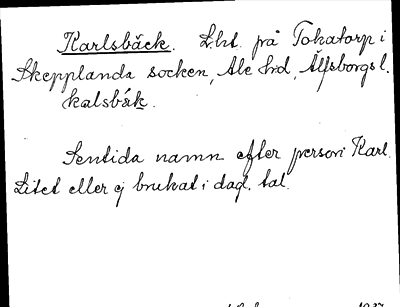 Karlsbäck. L.ht. på Tokatorp i
Skepplanda socken, Ale hd, Älfsborgs l.
kalsbäk.
Sentida namn efter person Karl.
Litet eller ej brukat i dag. tal.